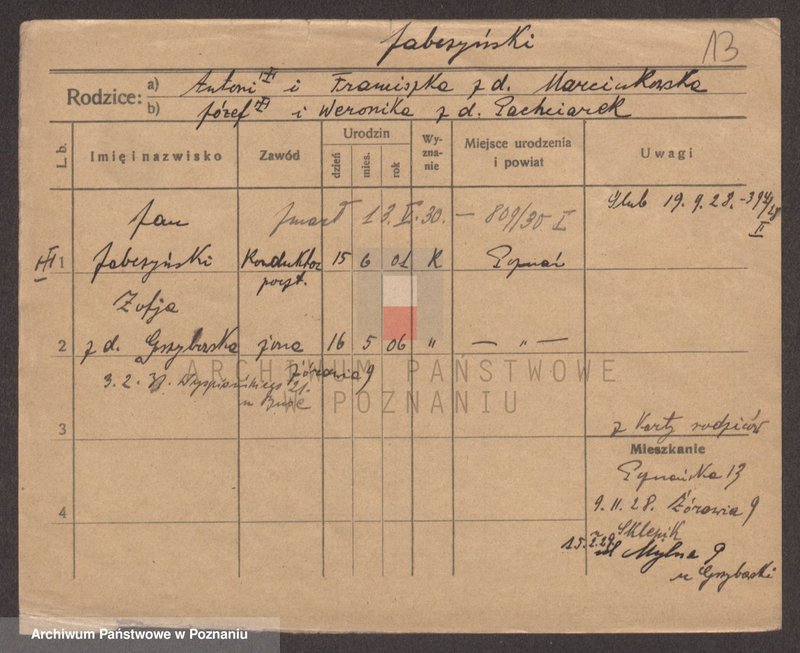 Jabczyński 13
Rodzice: a) Antoni i Franciszka z d. Marciukowska
b) Józef i Weronika z d. Pachciarek
L. b. Imię i nazwisko Zawód Urodzin dzień mies. rok Wyznanie Miejsce urodzenia i powiat Uwagi
Jan zmarł 13. V. 30. – 809/30 I Ślub 19. 9. 28.
II
1 Jabczyński Konduktor 15 6 01 K Poznań
Zofja
2 z d. Grzybowska żona 16 5 06 " — " —
3. 2. Wyspiańskiego 21. Żórawia 9
ARCHIWUM PAŃSTWOWE
W POZNANIU
3 z Karty rodziców
Mieszkanie
Poznańska 13
4 9. 11. 28. Żórawia 9
Sklepik
15. 2. 29. ul Mylna 9
u Grzybowski
Archiwum Państwowe w Poznaniu